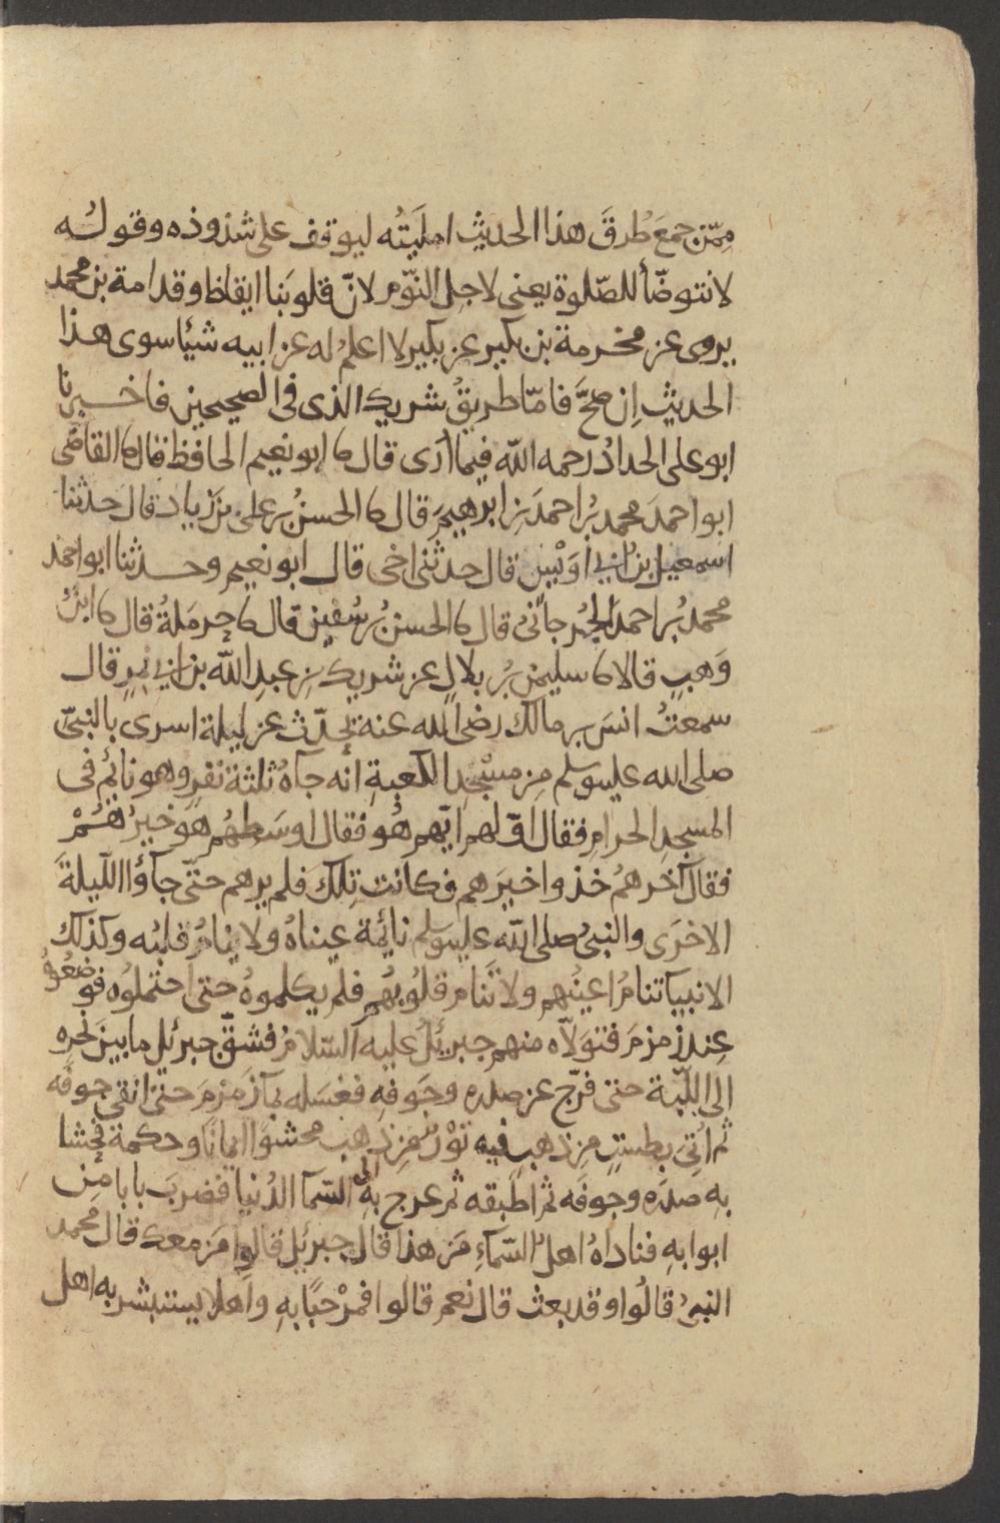 مِمّن جمعَ طُرقَ هذا الحديثِ امليتُه ليوقف على شذوذه وقولُه
لا نتوضّأ للصّلوة يعنى لاجل النّوم لانّ قلوبَنا ايقاظ وقدامة بن محمد
يروى عن مخرمة بن بكير عن بكير لا اعلمُ له عن ابيه شيئا سوى هذا
الحديث اِن صحَّ فامّا طريقُ شريك الذى فى الصحيحين فاخبرنا
ابو على الحدادُ رحمه الله فيما أرَى قال نا ابو نعيم الحافظ قال نا القاضى
ابو احمدَ محمد بنُ احمدَ بنِ ابرهيمَ قال نا الحسنُ بن على بن زياد قال حدثنا
اسمعيل بن ابى اوَيْسٍ قال حدثنى اخى قال ابو نعيم وحدثنا ابو احمد
محمد بنُ احمد الجُرجانىُ قال نا الحسنُ بن سُفين قال نا حرملةُ قال نا ابنُ
وَهبٍ قالا نا سليمن بنُ بلالٍ عن شريك بنِ عبدِ الله بن ابى نمِرٍ قال
سمعتُ انسَ بن مالك رضى الله عنه يُحدّث عن ليلة اسرى بالنبىّ
صلى الله عليه وسلم مِن مسْجدِ الكعبةِ انه جآهُ ثلثة نفرٍ وهو نائمٌ فى
المسجدِ الحرامِ فقال اوّلهم ايّهم هُو فقال اوسَطهُم هوَ خيرُهُمْ
فقال آخرهمُ خذوا خيرَهم فكانت تِلكَ فلم يرهم حتّى جآؤا الليلةَ
الاخرَى والنبىُ صلى الله عليه وسلم نائمة عيناهُ ولا ينامُ قلبُه وكذلك
الانبيآ تنامُ اعينُهم ولا تَنام قلُوبُهُم فلم يكلموهُ حتى احتملوُه فوضعُوهُ
عِند زمزمَ فتولّاه منهم جبرئلُ عليه السّلامُ فشقّ جبرئل ما بين نحرِه
الى اللّبّة حتى فرّج عن صدره وجَوفهِ فغسَله بمآ زَمزمَ حتى انقى جوفه
ثم اُتِى بطستٍ مِن ذهبٍ فيه تَوْرٌ مِن ذهب محشوًّا ايمانًا وحكمة فحَشا
بهِ صدرَه وجوفَه ثم اطبقه ثم عرج به الى السّمآ الدُنيا فضربَ بابا مِن
ابوابهِ فناداهُ اهلُ السّمآءِ مَن هذا قال جبرئل قالوا مَن معك قال محمد
النبىُ قالُوا وقد بعث قال نعم قالوا فمرْحبًا بهِ واهلا يستبشر به اهل